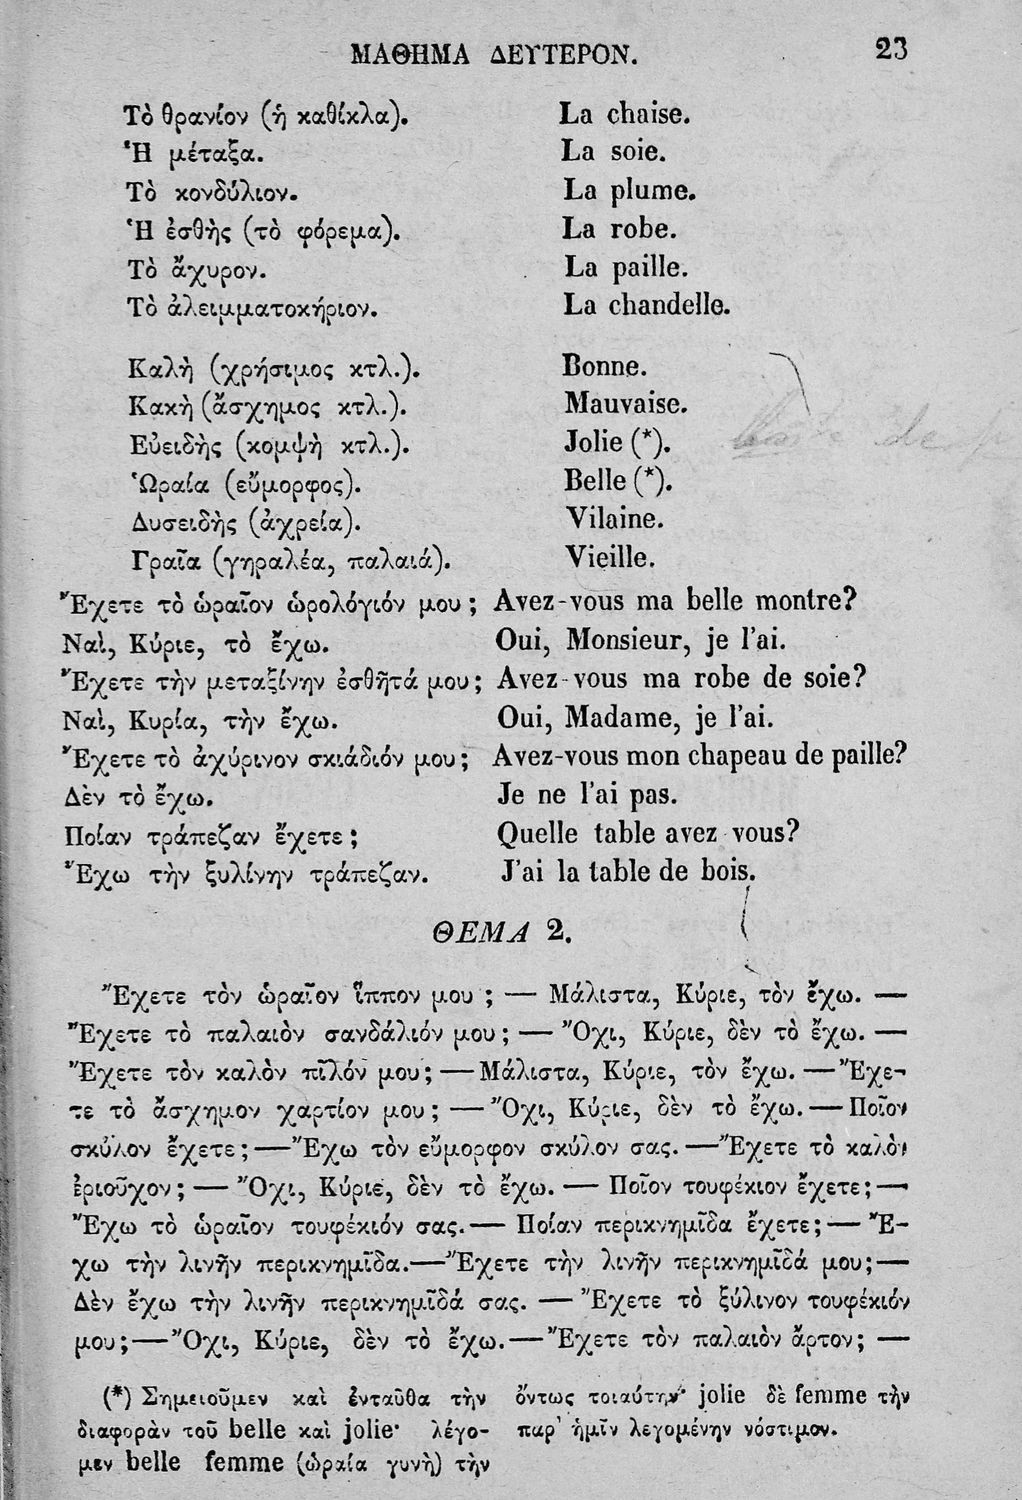 ΜΑΘΗΜΑ ΔΕΥΤΕΡΟΝ. 23
Τὸ θρανίον (ἡ καθίκλα). La chaise.
Ἡ μέταξα. La soie.
Τὸ κονδύλιον. La plume.
Ἡ ἐσθὴς (τὸ φόρεμα). La robe.
Τὸ ἄχυρον. La paille.
Τὸ ἀλειμματοκήριον. La chandelle.
Καλὴ (χρήσιμος κτλ.). Bonne.
Κακὴ (ἄσχημος κτλ.). Mauvaise.
Εὐειδὴς (κομψὴ κτλ.). Jolie (*).
Ὡραία (εὔμορφος). Belle (*).
Δυσειδὴς (ἀχρεία). Vilaine.
Γραῖα (γηραλέα, παλαιά). Vieille.
Ἔχετε τὸ ὡραῖον ὡρολόγιόν μου; Avez-vous ma belle montre?
Ναὶ, Κύριε, τὸ ἔχω. Oui, Monsieur, je l'ai.
Ἔχετε τὴν μεταξίνην ἐσθῆτά μου; Avez-vous ma robe de soie?
Ναὶ, Κυρία, τὴν ἔχω. Oui, Madame, je l'ai.
Ἔχετε τὸ ἀχύρινον σκιάδιόν μου; Avez-vous mon chapeau de paille?
Δὲν τὸ ἔχω. Je ne l'ai pas.
Ποίαν τράπεζαν ἔχετε; Quelle table avez-vous?
Ἔχω τὴν ξυλίνην τράπεζαν. J'ai la table de bois.
ΘΕΜΑ 2.
Ἔχετε τὸν ὡραῖον ἵππον μου; — Μάλιστα, Κύριε, τὸν ἔχω. —
Ἔχετε τὸ παλαιὸν σανδάλιόν μου; — Ὄχι, Κύριε, δὲν τὸ ἔχω. —
Ἔχετε τὸν καλὸν πῖλόν μου; — Μάλιστα, Κύριε, τὸν ἔχω. — Ἔχε-
τε τὸ ἄσχημον χαρτίον μου; — Ὄχι, Κύριε, δὲν τὸ ἔχω. — Ποῖον
σκύλον ἔχετε; — Ἔχω τὸν εὔμορφον σκύλον σας. — Ἔχετε τὸ καλὸν
ἐριοῦχον; — Ὄχι, Κύριε, δὲν τὸ ἔχω. — Ποῖον τουφέκιον ἔχετε; —
Ἔχω τὸ ὡραῖον τουφέκιόν σας. — Ποίαν περικνημῖδα ἔχετε; — Ἔ-
χω τὴν λινῆν περικνημῖδα. — Ἔχετε τὴν λινῆν περικνημῖδά μου; —
Δὲν ἔχω τὴν λινῆν περικνημῖδά σας. — Ἔχετε τὸ ξύλινον τουφέκιόν
μου; — Ὄχι, Κύριε, δὲν τὸ ἔχω. — Ἔχετε τὸν παλαιὸν ἄρτον; —
(*) Σημειοῦμεν καὶ ἐνταῦθα τὴν
διαφορὰν τοῦ belle καὶ jolie· λέγο-
μεν belle femme (ὡραία γυνὴ) τὴν
ὄντως τοιαύτην· jolie δὲ femme τὴν
παρ' ἡμῖν λεγομένην νόστιμον.